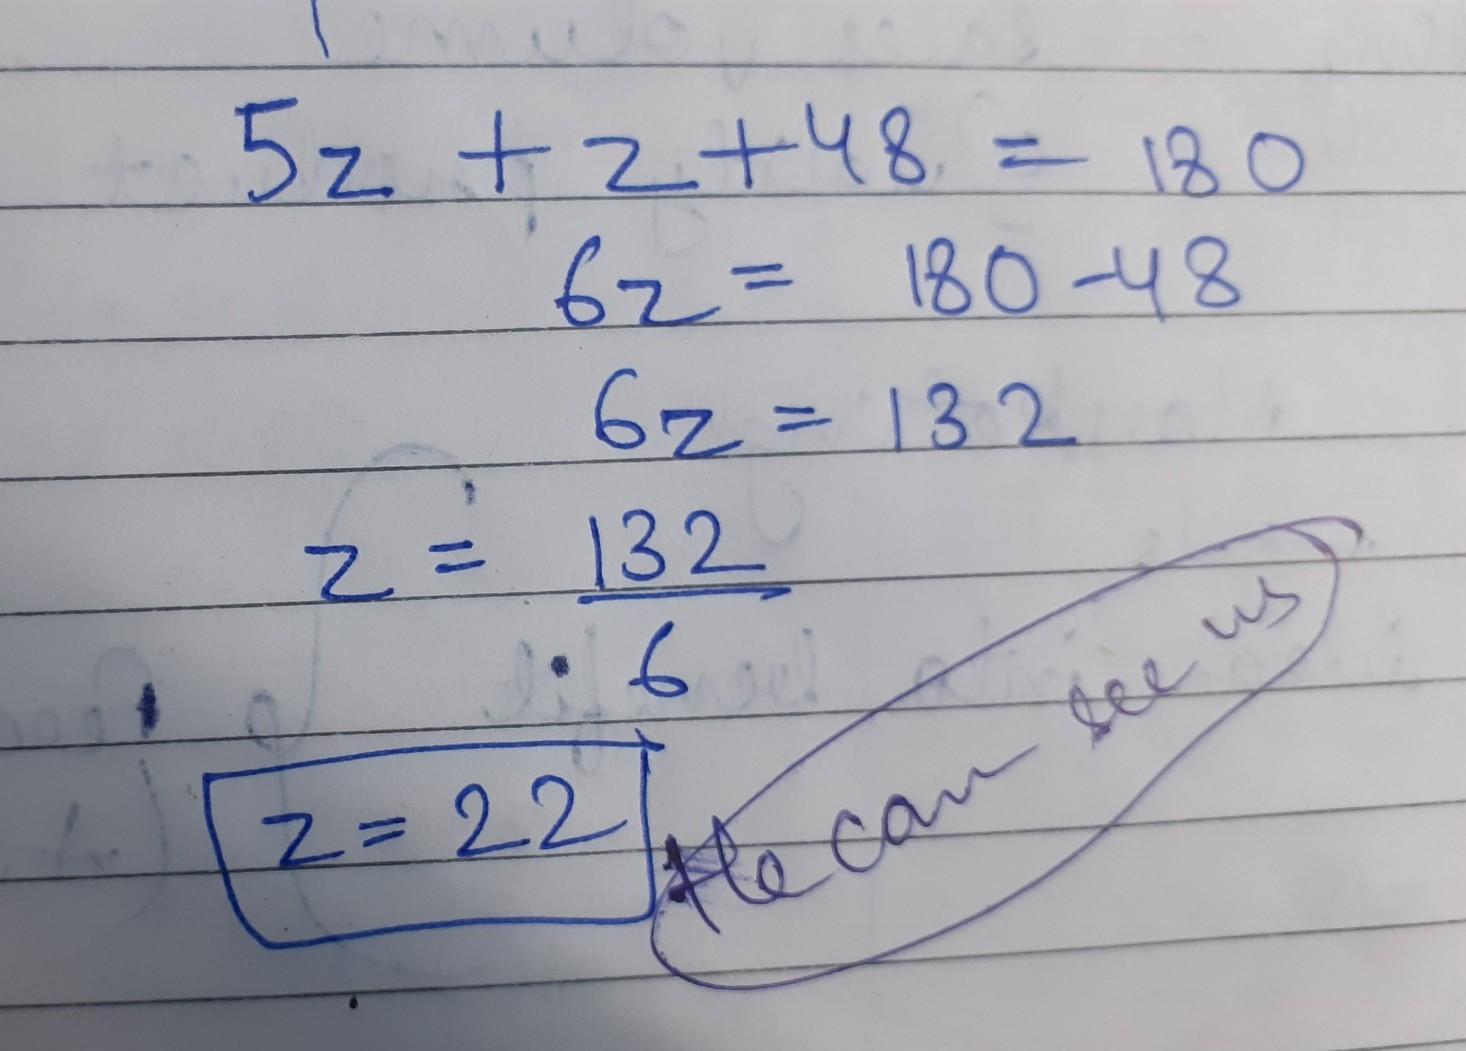 5z + z + 48 = 180
6z = 180 - 48
6z = 132
z = 132
6
z = 22
He can see us